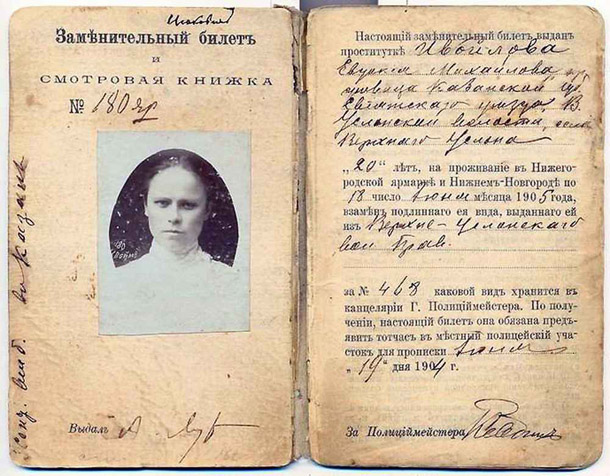 Замѣнительный билетъ
и
СМОТРОВАЯ КНИЖКА
№ 180 яр
Выдалъ
Настоящій замѣнительный билетъ выданъ
проституткѣ Ивойлова
Евдокія Михайлова
Казанской губ
уѣзда, В
Услонской волости, села
Верхняго Услона
„20“ лѣтъ, на проживаніе въ Нижего-
родской ярмаркѣ и Нижнемъ-Новгородѣ по
18 число Іюня мѣсяца 1905 года,
взамѣнъ подлиннаго ея вида, выданнаго ей
изъ Верхне-Услонскаго
вол Прав.
за № 463 каковой видъ хранится въ
канцеляріи Г. Полиціймейстера. По полу-
ченіи, настоящій билетъ она обязана предъ-
явить тотчасъ въ мѣстный полицейскій учас-
токъ для прописки Іюня
„19“ дня 1904 г.
За Полиціймейстера